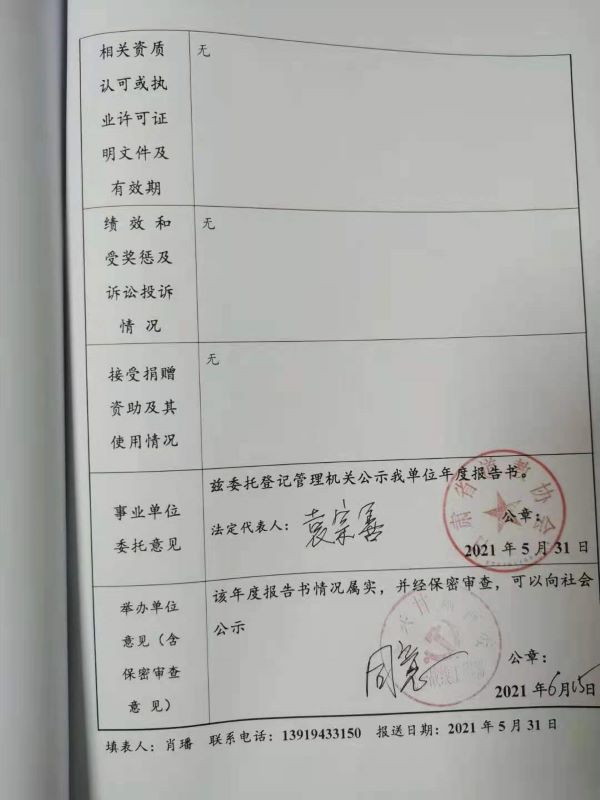 相关资质
认可或执
业许可证
明文件及
有效期
无
绩效和
受奖惩及
诉讼投诉
情况
无
接受捐赠
资助及其
使用情况
无
事业单位
委托意见
兹委托登记管理机关公示我单位年度报告书。
法定代表人：袁宗善
公章：
2021年5月31日
举办单位
意见（含
保密审查
意见）
该年度报告书情况属实，并经保密审查，可以向社会
公示
公章：
2021年6月15日
填表人：肖璠 联系电话：13919433150 报送日期：2021年5月31日